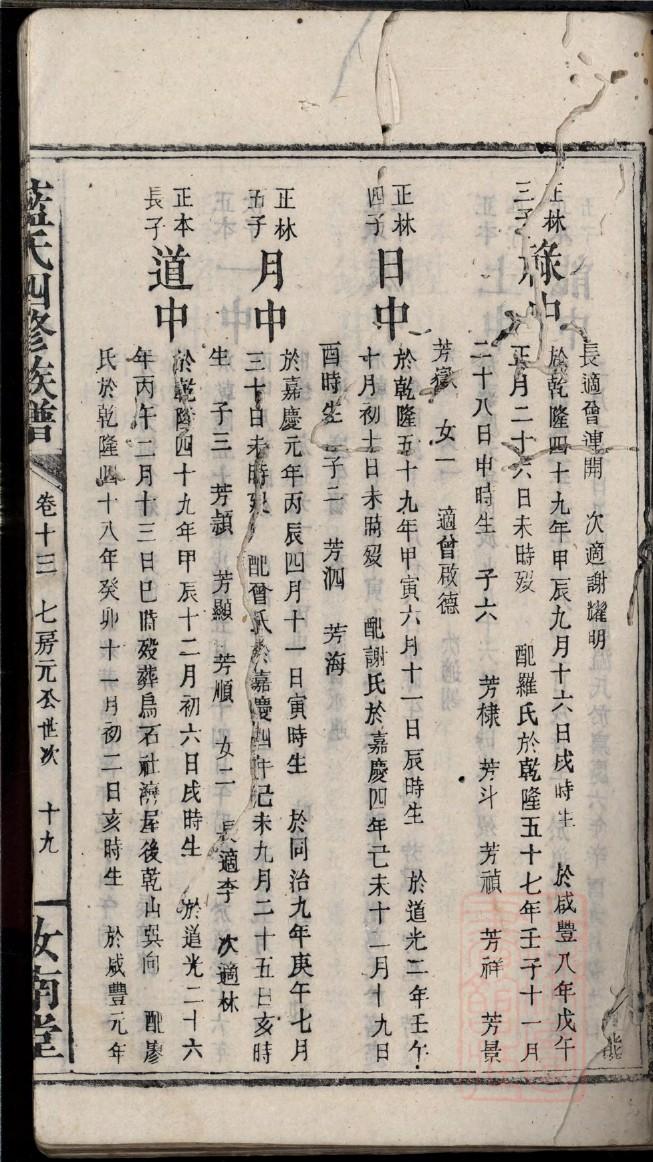 長適曾連開 次適謝耀明
正林
三子
祿中
於乾隆四十九年甲辰九月十六日戌時生 於咸豐八年戊午
正月二十六日未時歿 配羅氏於乾隆五十七年壬子十一月
二十八日申時生 子六 芳棣 芳斗 芳禎 芳祥 芳景
芳嶽 女一 適曾啟德
正林
四子
日中
於乾隆五十九年甲寅六月十一日辰時生 於道光二年壬午
十月初十日未時歿 配謝氏於嘉慶四年己未十一月十九日
酉時生 子二 芳泗 芳海
正林
五子
月中
於嘉慶元年丙辰四月十一日寅時生 於同治九年庚午七月
三十日未時歿 配曾氏於嘉慶四年己未九月二十五日亥時
生 子三 芳頴 芳顯 芳順 女二 長適李 次適林
正本
長子
道中
於乾隆四十九年甲辰十二月初六日戌時生 於道光二十六
年丙午二月十三日巳時歿葬烏石社濟屋後乾山巽向 配廖
氏於乾隆四十八年癸卯十一月初二日亥時生 於咸豐元年
藍氏四修族譜 卷十三 七房元公世次 十九 汝南堂